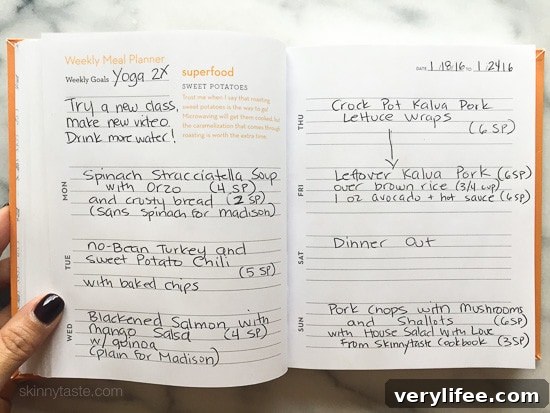 Weekly Meal Planner
Weekly Goals Yoga 2X
Try a new class,
make new video
Drink more water!
superfood
SWEET POTATOES
Trust me when I say that roasting
sweet potatoes is the way to go!
Microwaving will get them cooked, but
the caramelization that comes through
roasting is worth the extra time.
MON
Spinach Stracciatella Soup
with Orzo (4 SP)
and crusty bread (2 SP)
(sans spinach for madison)
TUE
no-Bean Turkey and
Sweet Potato Chili
(5 SP)
with baked chips
WED
Blackened Salmon with
mango Salsa (4 SP)
w/ quinoa
(plain for Madison)
DATE 1/18/16 TO 1/24/16
THU
Crock Pot Kalua Pork
Lettuce Wraps
(6 SP)
FRI
Leftover Kalua Pork (6SP)
over brown rice (3/4 cup)
1 oz avocado + hot sauce (6SP)
SAT
Dinner Out
SUN
Pork Chops with Mushrooms
and Shallots (6SP)
with House Salad With Love
From Skinnytaste Cookbook (3SP)
skinnytaste.com
verylifee.com